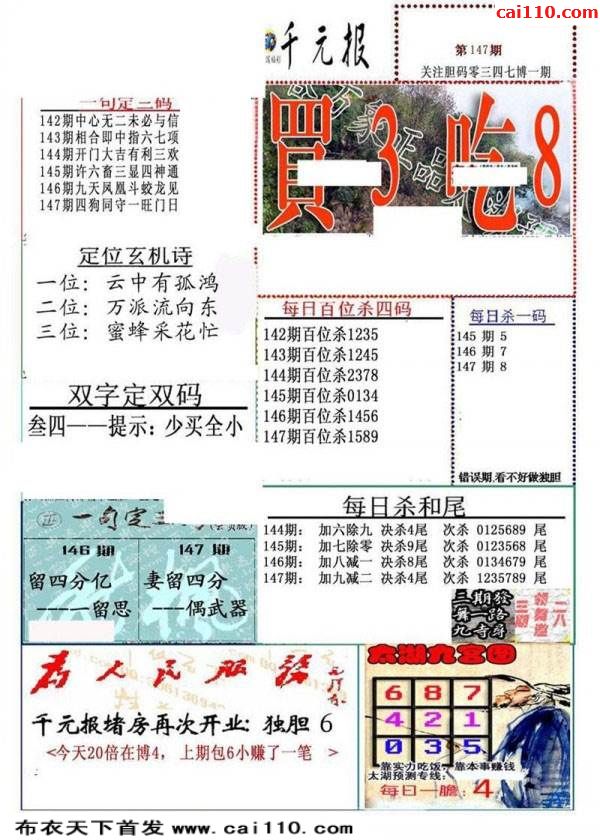 cai110.com
千元报
第147期
关注胆码零三四七博一期
一句定三码
142期中心无二未必与信
143期相合即中指六七项
144期开门大吉有利三欢
145期许六畜三显四神通
146期九天凤凰斗蛟龙见
147期四狗同守一旺门日
買3吃8
定位玄机诗
一位：云中有孤鸿
二位：万派流向东
三位：蜜蜂采花忙
每日百位杀四码
142期百位杀1235
143期百位杀1245
144期百位杀2378
145期百位杀0134
146期百位杀1456
147期百位杀1589
每日杀一码
145期 5
146期 7
147期 8
错误期.看不好做独胆
双字定双码
叁四——提示：少买全小
每日杀和尾
144期： 加六除九 决杀4尾 次杀 0125689 尾
145期： 加七除零 决杀9尾 次杀 0123568 尾
146期： 加八减一 决杀8尾 次杀 0134679 尾
147期： 加九减二 决杀4尾 次杀 1235789 尾
正 一句定三
146期
留四分亿
——留思
147期
妻留四分
——偶武器
三期发
舞一路
九寺尊
为人民服务
千元报绪房再次开业：独胆 6
<今天20倍在博4，上期包6小赚了一笔 >
太湖九宫图
6 8 7
4 2 1
0 3 5
靠实力吃饭，靠本事赚钱
太湖预测专线：
每日一胆：4
布衣天下首发 www.cai110.com